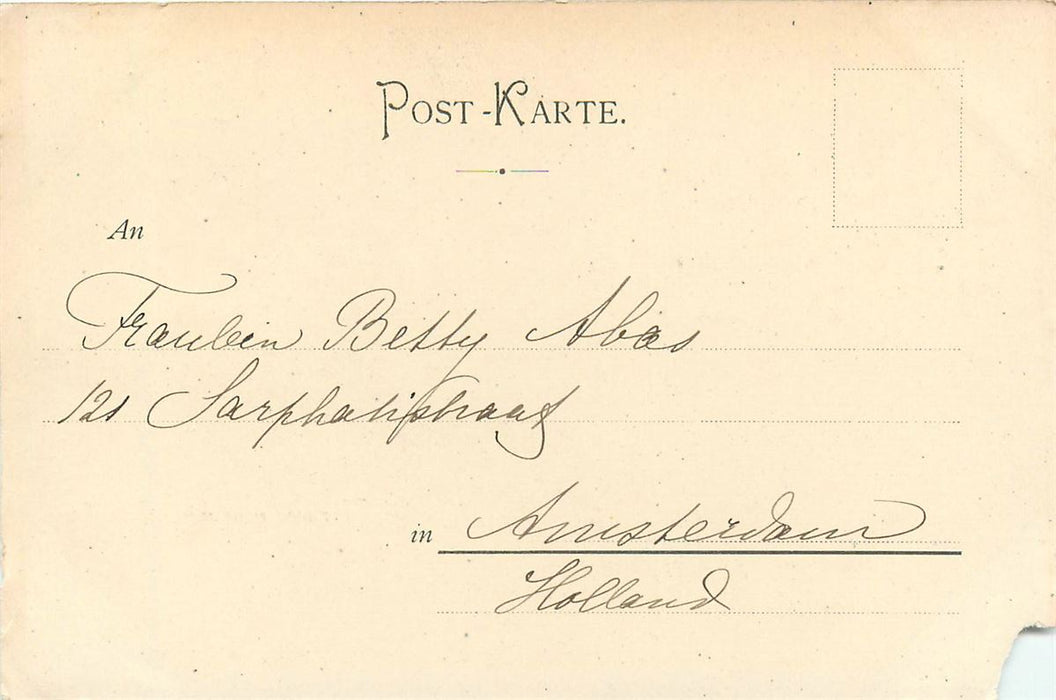 POST-KARTE.
An
Fraulein Betty Abas
121 Sarphatistraat
in Amsterdam
Holland